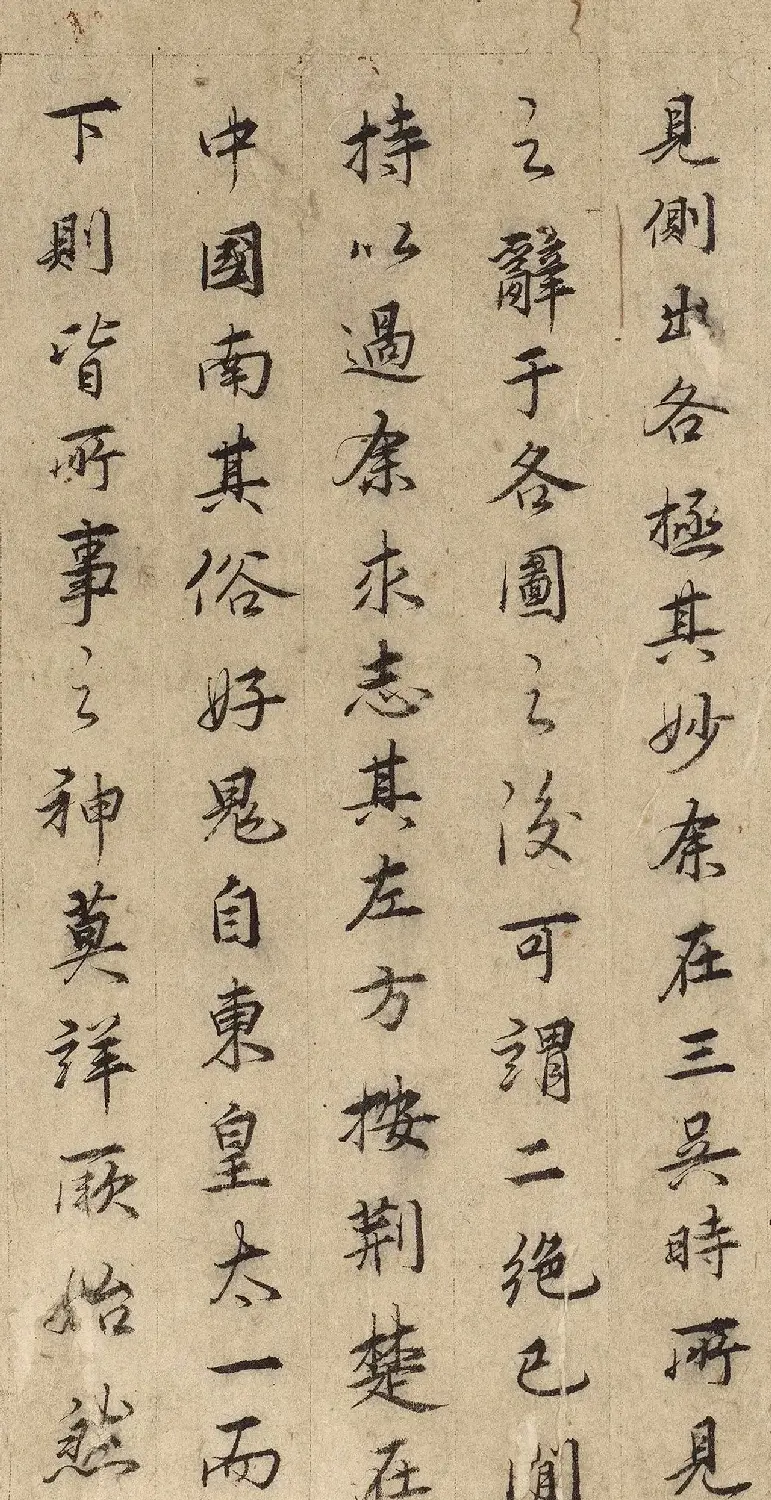 見側出各極其妙余在三吳時所見
之辭于各圖之後可謂二絕已閒
持以過余求志其左方按荆楚在
中國南其俗好鬼自東皇太一而
下則皆所事之神莫詳厥始然